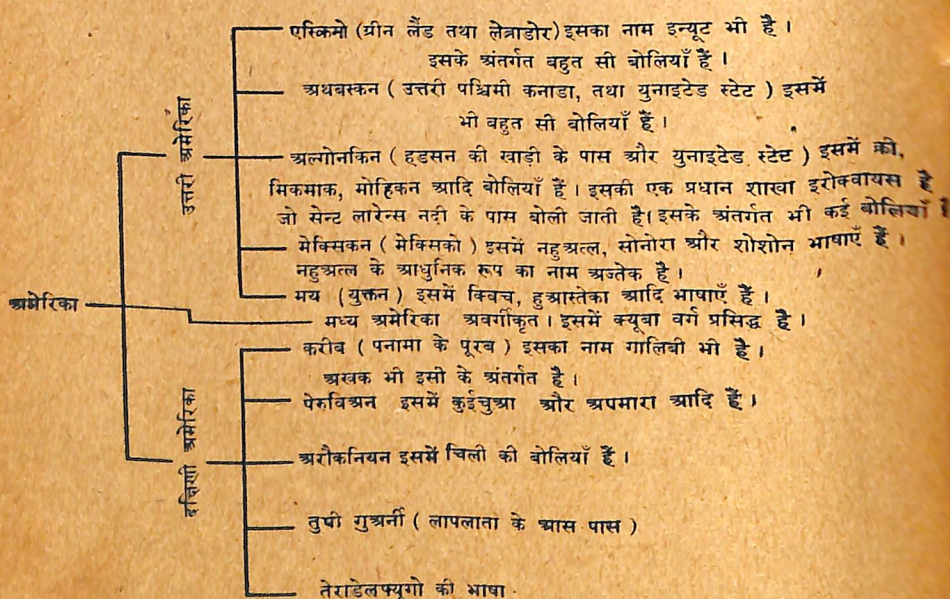 एस्किमो (ग्रीन लैंड तथा लेब्राडोर) इसका नाम इन्यूट भी है।
इसके अंतर्गत बहुत सी बोलियाँ हैं।
अथबस्कन ( उत्तरी पश्चिमी कनाडा, तथा युनाइटेड स्टेट ) इसमें
भी बहुत सी बोलियाँ हैं।
उत्तरी अमेरिका
अल्गोनकिन ( हडसन की खाड़ी के पास और युनाइटेड स्टेट ) इसमें क्री,
मिकमाक, मोहिकन आदि बोलियाँ हैं। इसकी एक प्रधान शाखा इरोक्वायस है
जो सेन्ट लारेन्स नदी के पास बोली जाती है। इसके अंतर्गत भी कई बोलियाँ हैं
मेक्सिकन ( मेक्सिको ) इसमें नहुअत्ल, सोनोरा और शोशोन भाषाएँ हैं।
नहुअत्ल के आधुनिक रूप का नाम अज्तेक है।
मय (युक्तन) इसमें क्विच, हुआस्तेका आदि भाषाएँ हैं।
अमेरिका
मध्य अमेरिका अवर्गीकृत। इसमें क्यूबा वर्ग प्रसिद्ध है।
करीब ( पनामा के पूरब ) इसका नाम गालिबी भी है।
अखक भी इसी के अंतर्गत है।
पेरुविअन इसमें कुईचुआ और अपमारा आदि हैं।
दक्षिणी अमेरिका
अरौकनियन इसमें चिली की बोलियाँ हैं।
तुपी गुअर्नी ( लापलाता के आस पास )
तेराडेलफ्युगो की भाषा